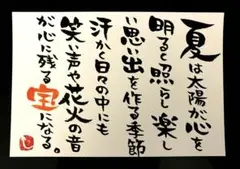 夏は太陽が心を
明るく照らし楽し
い思い出を作る季節
汗かく日々の中にも
笑い声や花火の音
が心に残る宝になる。